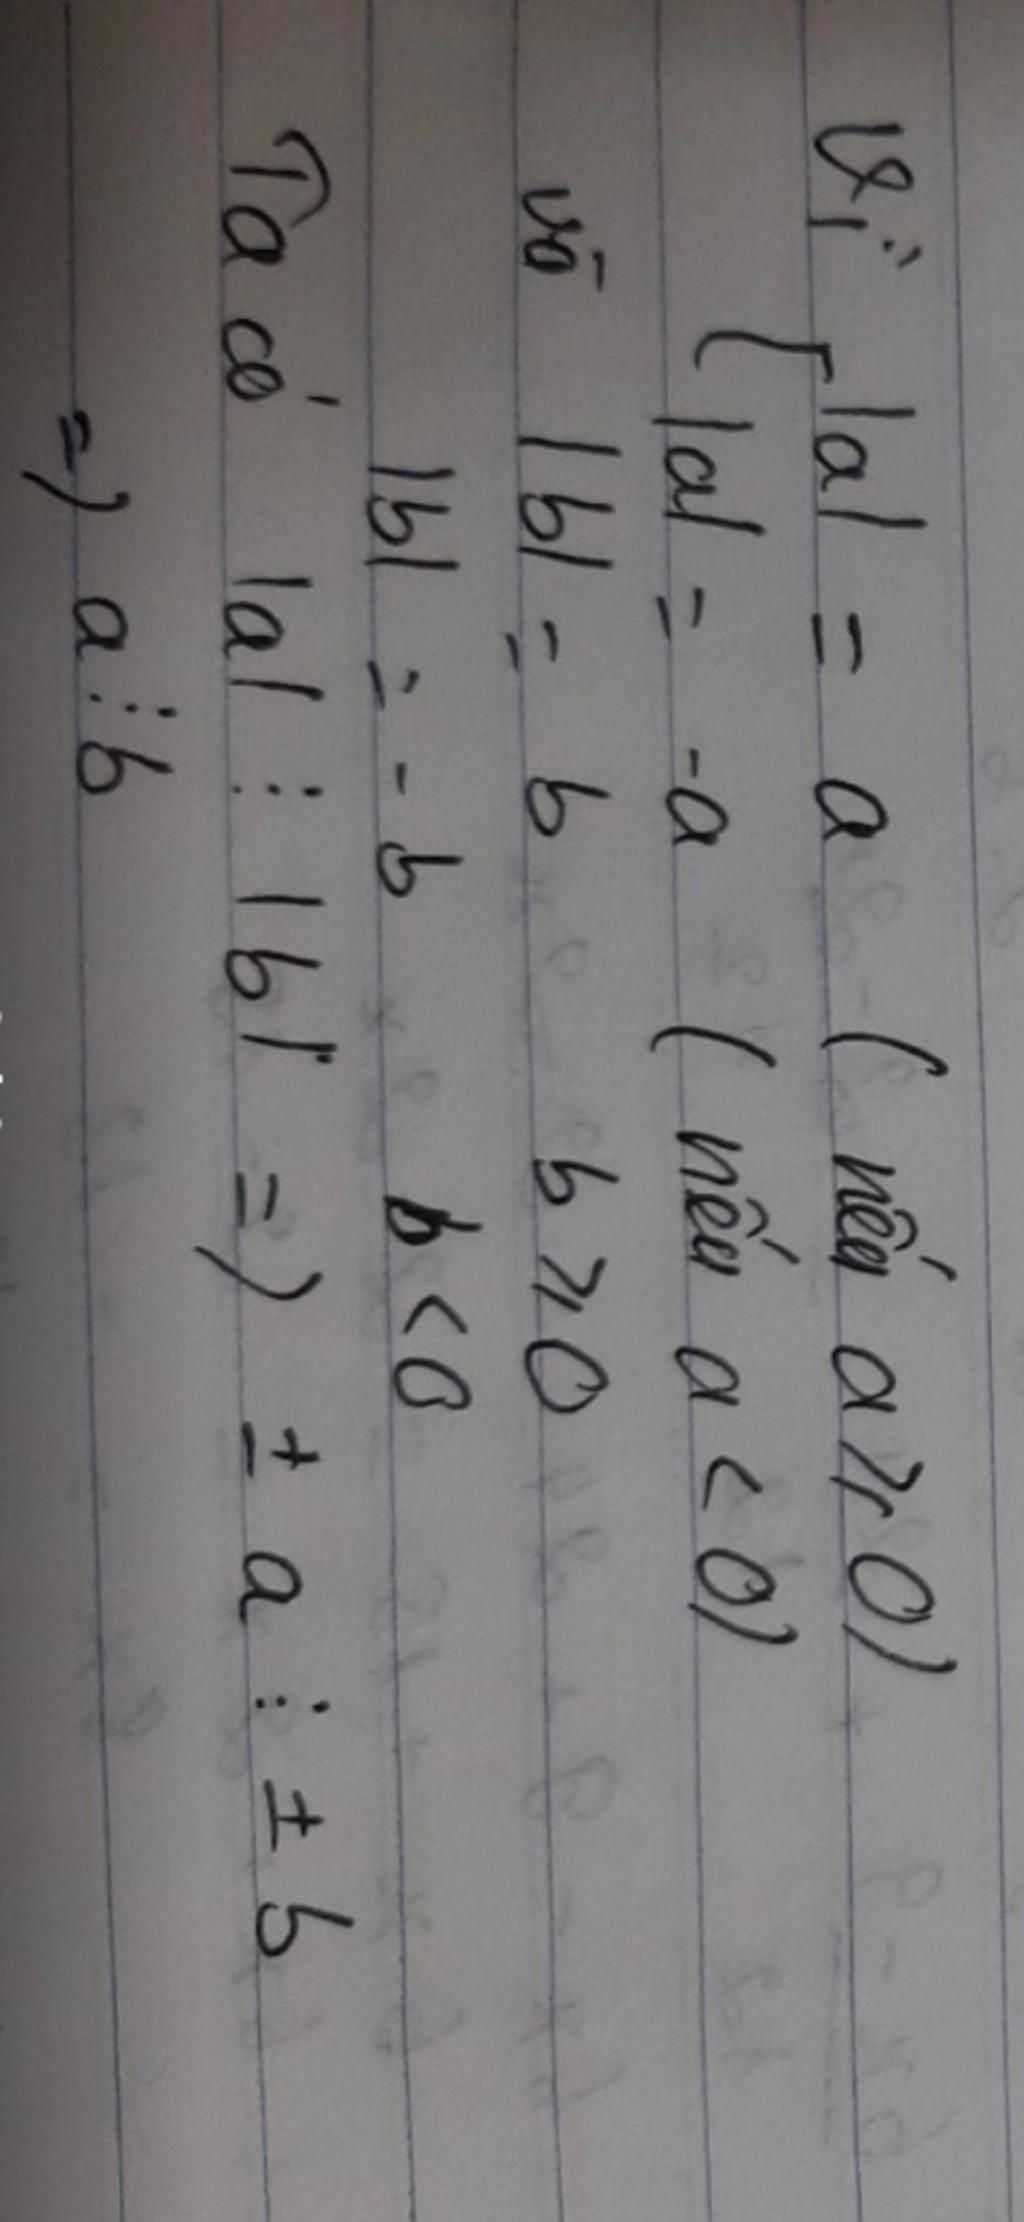 Vì |a| = a (nếu a ≥ 0)
|a| = -a (nếu a < 0)
và |b| = b b ≥ 0
|b| = -b b < 0
Ta có |a| ⋮ |b| => ± a ⋮ ± b
=> a ⋮ b